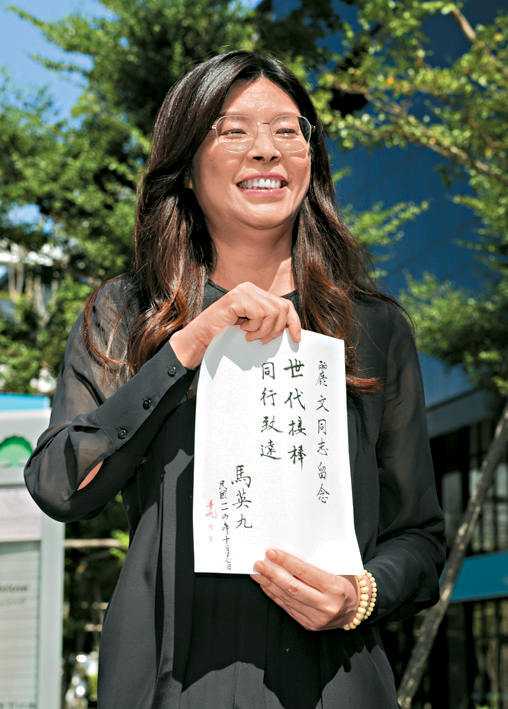 麗文同志留念
世代接棒
同行致遠
馬英九
民國一一四年十月七日